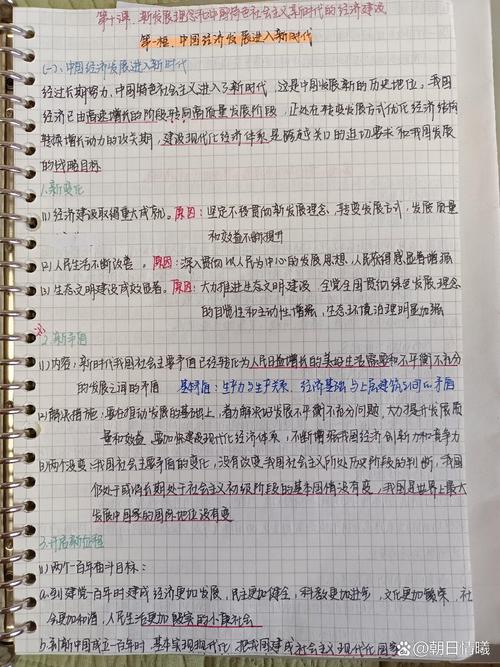 第十课 新发展理念和中国特色社会主义新时代的经济建设
第一框 中国经济发展进入新时代
(一)、中国经济发展进入新时代
经过长期努力,中国特色社会主义进入了新时代,这是中国发展新的历史地位。我国
经济已由高速增长的阶段转向高质量发展阶段,正处在转变发展方式优化经济结构
转换增长动力的攻关期,建设现代化经济体系是跨越关口的迫切要求和我国发展
的战略目标
1.新变化
(1)经济建设取得重大成就。原因:坚定不移贯彻新发展理念,转变发展方式,发展质量
和效益不断提升
(2)人民生活不断改善。原因:深入贯彻以人民为中心的发展思想,人民获得感显著增强
(3)生态文明建设成效显著。原因:大力推进生态文明建设 全党全国贯彻绿色发展理念
的自觉性和主动性增强,生态环境治理明显加强
2.新矛盾
(1)内容:新时代我国社会主要矛盾已经转化为人民日益增长的美好生活需要和不平衡不充分
的发展之间的矛盾 基本矛盾:生产力与生产关系、经济基础与上层建筑之间的矛盾
(2)解决措施:要在推动发展的基础上,着力解决好发展不平衡不充分问题,大力提升发展质
量和效益 要加快建设现代化经济体系,不断增强我国经济创新力和竞争力
(3)两个没变:我国社会主要矛盾的变化,没有改变我国社会主义所处历史阶段的判断,我国
仍处于或将长期处于社会主义初级阶段的基本国情没有变,我国是世界上最大
发展中国家的国际地位没有变
3.开启新征程
(1)两个一百年奋斗目标:
a.到建党一百年时建成经济更加发展,民主更加健全,科教更加进步,文化更加繁荣,社
会更加和谐,人民生活更加殷实的小康社会
b.到新中国成立一百年时 基本实现现代化,把我国建成社会主义现代化国家
@朝日情曦